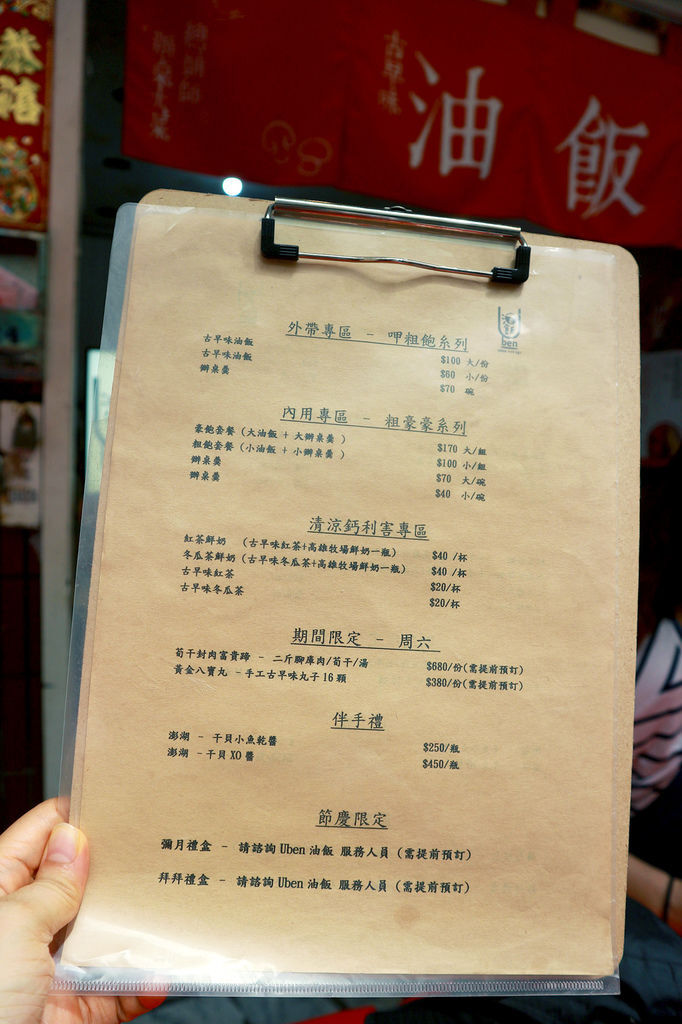 恭禧
古早味
油飯
ben
外帶專區 - 呷粗飽系列
古早味油飯 $100 大/份
古早味油飯 $60 小/份
辦桌羹 $70 碗
內用專區 - 粗豪豪系列
豪飽套餐 (大油飯 + 大辦桌羹 ) $170 大/組
粗飽套餐 (小油飯 + 小辦桌羹 ) $100 小/組
辦桌羹 $70 大/碗
辦桌羹 $40 小/碗
清涼鈣利害專區
紅茶鮮奶 (古早味紅茶+高雄牧場鮮奶一瓶) $40 /杯
冬瓜茶鮮奶 (古早味冬瓜茶+高雄牧場鮮奶一瓶) $40 /杯
古早味紅茶 $20/杯
古早味冬瓜茶 $20/杯
期間限定 - 周六
荀干封肉富貴蹄 - 二斤腳庫肉/荀干/湯 $680/份(需提前預訂)
黃金八寶丸 -手工古早味丸子 16 顆 $380/份(需提前預訂)
伴手禮
澎湖 - 干貝小魚乾醬 $250/瓶
澎湖 -干貝 XO 醬 $450/瓶
節慶限定
彌月禮盒 - 請諮詢 Uben 油飯 服務人員 (需提前預訂)
拜拜禮盒 - 請諮詢 Uben 油飯 服務人員 (需提前預訂)